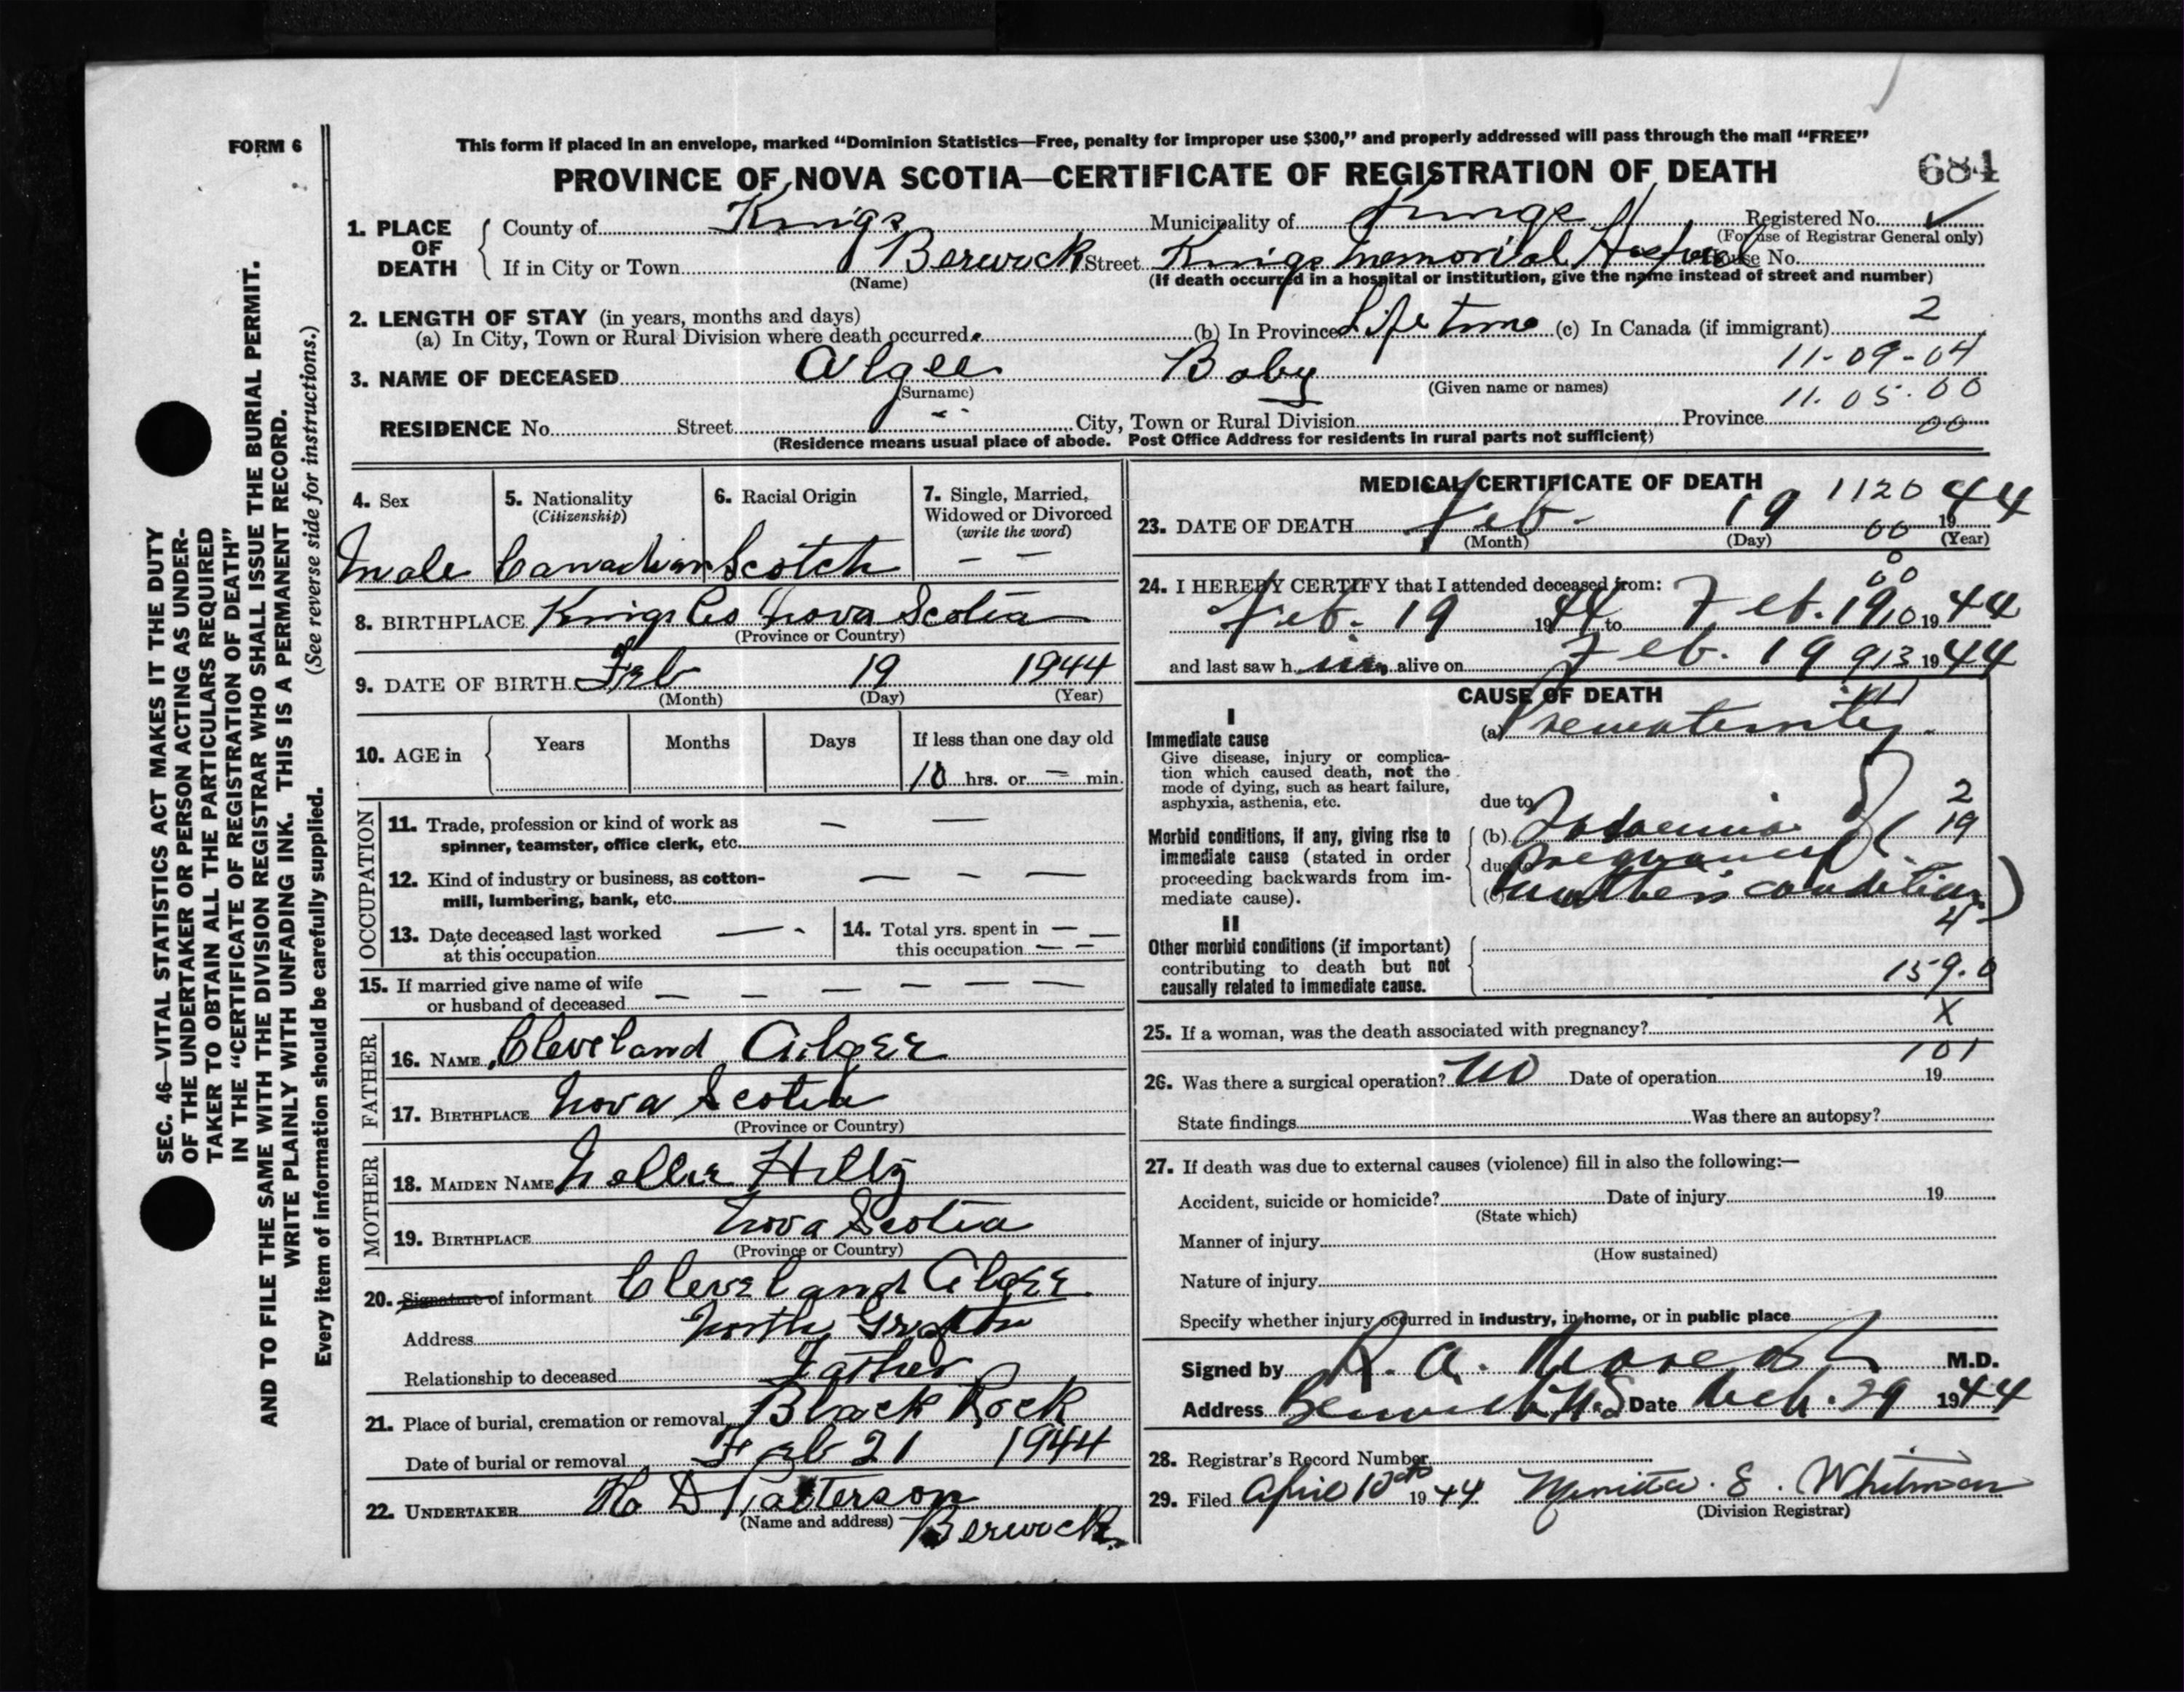 FORM 6
This form if placed in an envelope, marked “Dominion Statistics—Free, penalty for improper use $300,” and properly addressed will pass through the mail “FREE”
PROVINCE OF NOVA SCOTIA—CERTIFICATE OF REGISTRATION OF DEATH
684
1. PLACE OF DEATH
County of Kings Municipality of Kings Registered No. ✓
(For use of Registrar General only)
If in City or Town Berwick Street Kings Memorial Hospital House No.
(Name) (If death occurred in a hospital or institution, give the name instead of street and number)
2. LENGTH OF STAY (in years, months and days)
(a) In City, Town or Rural Division where death occurred (b) In Province Life time (c) In Canada (if immigrant) 2
11-09-04
3. NAME OF DECEASED Algee Baby
(Surname) (Given name or names)
11.05.00
RESIDENCE No. Street City, Town or Rural Division Province 00
(Residence means usual place of abode. Post Office Address for residents in rural parts not sufficient)
4. Sex
Male
5. Nationality
(Citizenship)
Canadian
6. Racial Origin
Scotch
7. Single, Married, Widowed or Divorced
(write the word)
— —
8. BIRTHPLACE Kings Co Nova Scotia
(Province or Country)
9. DATE OF BIRTH Feb 19 1944
(Month) (Day) (Year)
10. AGE in
Years Months Days If less than one day old
10 hrs. or — min.
OCCUPATION
11. Trade, profession or kind of work as — —
spinner, teamster, office clerk, etc.
12. Kind of industry or business, as cotton- — — —
mill, lumbering, bank, etc.
13. Date deceased last worked — -
at this occupation
14. Total yrs. spent in — —
this occupation — —
15. If married give name of wife
or husband of deceased — — — — — —
FATHER
16. NAME Cleveland Algee
17. BIRTHPLACE Nova Scotia
(Province or Country)
MOTHER
18. MAIDEN NAME Nellie
19. BIRTHPLACE Nova Scotia
(Province or Country)
20. Signature of informant Cleveland Algee
Address North Grafton
Relationship to deceased Father
21. Place of burial, cremation or removal Black Rock
Date of burial or removal Feb 21 1944
22. UNDERTAKER H D Patterson
(Name and address) Berwick
MEDICAL CERTIFICATE OF DEATH
1120
23. DATE OF DEATH Feb. 19 1944
(Month) (Day) 00 (Year)
0
24. I HEREBY CERTIFY that I attended deceased from: 00
Feb. 19 1944 to Feb. 19 10 1944
and last saw h im alive on Feb. 19 913 1944
CAUSE OF DEATH
I
Immediate cause
Give disease, injury or complication which caused death, not the mode of dying, such as heart failure, asphyxia, asthenia, etc.
(a) Prematurity
due to
2
Morbid conditions, if any, giving rise to immediate cause (stated in order proceeding backwards from immediate cause).
(b) Toxaemia of 19
due to Pregnancy
(c) (mother's condition)
4
II
Other morbid conditions (if important) contributing to death but not causally related to immediate cause.
159.0
25. If a woman, was the death associated with pregnancy? X
101
26. Was there a surgical operation? No Date of operation 19
State findings Was there an autopsy?
27. If death was due to external causes (violence) fill in also the following:—
Accident, suicide or homicide? Date of injury 19
(State which)
Manner of injury
(How sustained)
Nature of injury
Specify whether injury occurred in industry, in home, or in public place
Signed by R. A. M.D.
Address Berwick N.S Date Mch. 29 1944
28. Registrar's Record Number
29. Filed April 10th 1944 E. Whitman
(Division Registrar)
SEC. 46—VITAL STATISTICS ACT MAKES IT THE DUTY
OF THE UNDERTAKER OR PERSON ACTING AS UNDER-
TAKER TO OBTAIN ALL THE PARTICULARS REQUIRED
IN THE “CERTIFICATE OF REGISTRATION OF DEATH”
AND TO FILE THE SAME WITH THE DIVISION REGISTRAR WHO SHALL ISSUE THE BURIAL PERMIT.
WRITE PLAINLY WITH UNFADING INK. THIS IS A PERMANENT RECORD.
Every item of information should be carefully supplied. (See reverse side for instructions.)